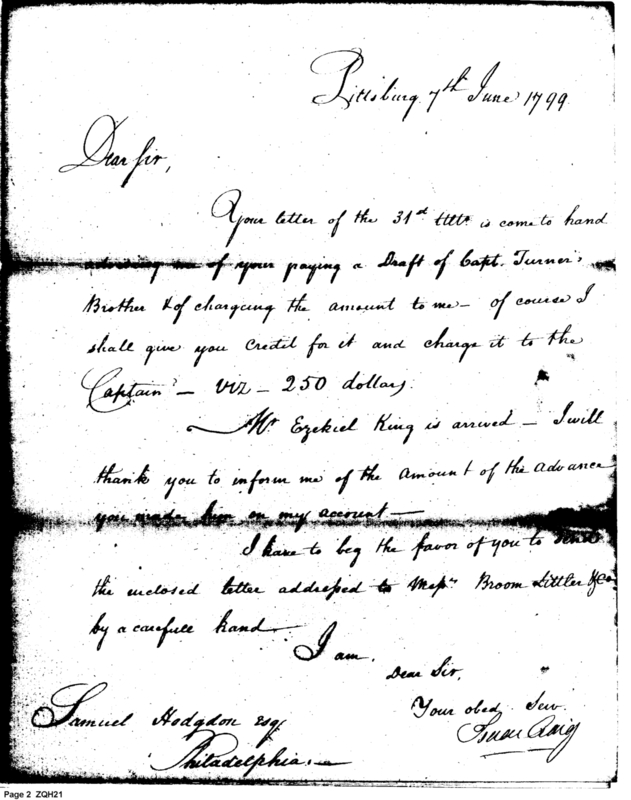 Pittsburg 7th June 1799
Dear Sir,
Your letter of the 31st Ulto. is come to hand
advising me of your paying a Draft of Capt. Turner's
Brother & of charging the amount to me – of course I
shall give you credit for it and charge it to the
Captain – viz – 250 dollars.
Mr Ezekiel King is arrived – I will
thank you to inform me of the amount of the advance
you made him on my account –
I have to beg the favor of you to send
the enclosed letter addressed to Messrs Broom Littler & Co
by a carefull hand
I am,
Dear Sir,
Your obed. Serv.
Isaac Craig
Samuel Hodgdon Esqr
Philadelphia. –
Page 2 ZQH21